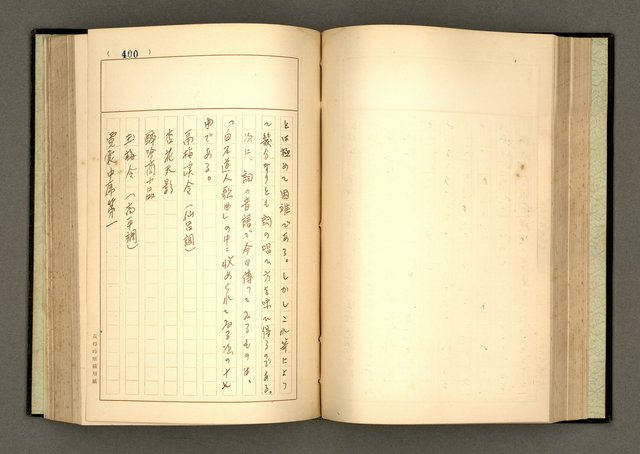 (400)
とは極めて困難である。しかしこれ等によつ
て幾分なりとも詞の唱ひ方を味ひ得るのである。
次に、詞の音譜で今日傳つてゐるものは、
「白石道人歌曲」の中に收められてゐる次の十七
曲である。
鬲梅溪令（仙呂調）
杏花天影
醉吟商小品
玉梅令（高平調）
霓裳中序第一
原稿用紙